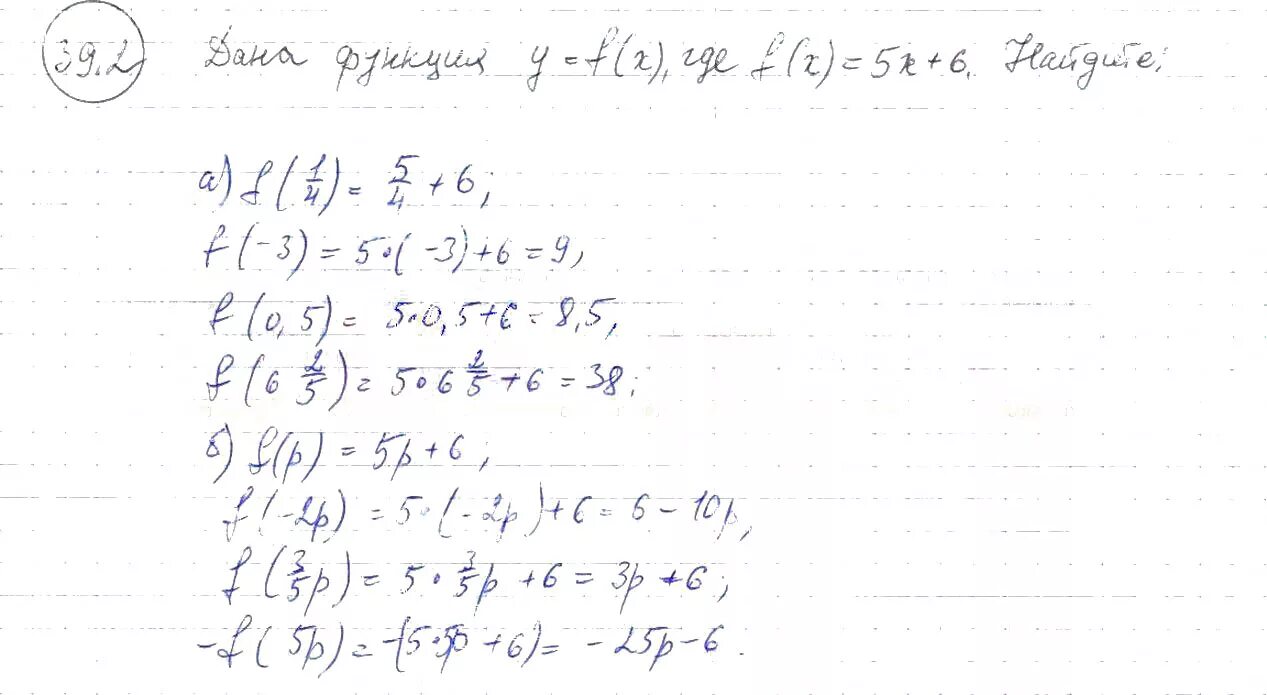 39.2 Дана функция y = f(x), где f(x) = 5x + 6. Найдите:
а) f(1/4) = 5/4 + 6;
f(-3) = 5·(-3) + 6 = 9,
f(0,5) = 5·0,5 + 6 = 8,5,
f(6 2/5) = 5·6 2/5 + 6 = 38;
б) f(p) = 5p + 6,
f(-2p) = 5·(-2p) + 6 = 6 - 10p,
f(3/5p) = 5·3/5p + 6 = 3p + 6;
-f(5p) = -(5·5p + 6) = -25p - 6.